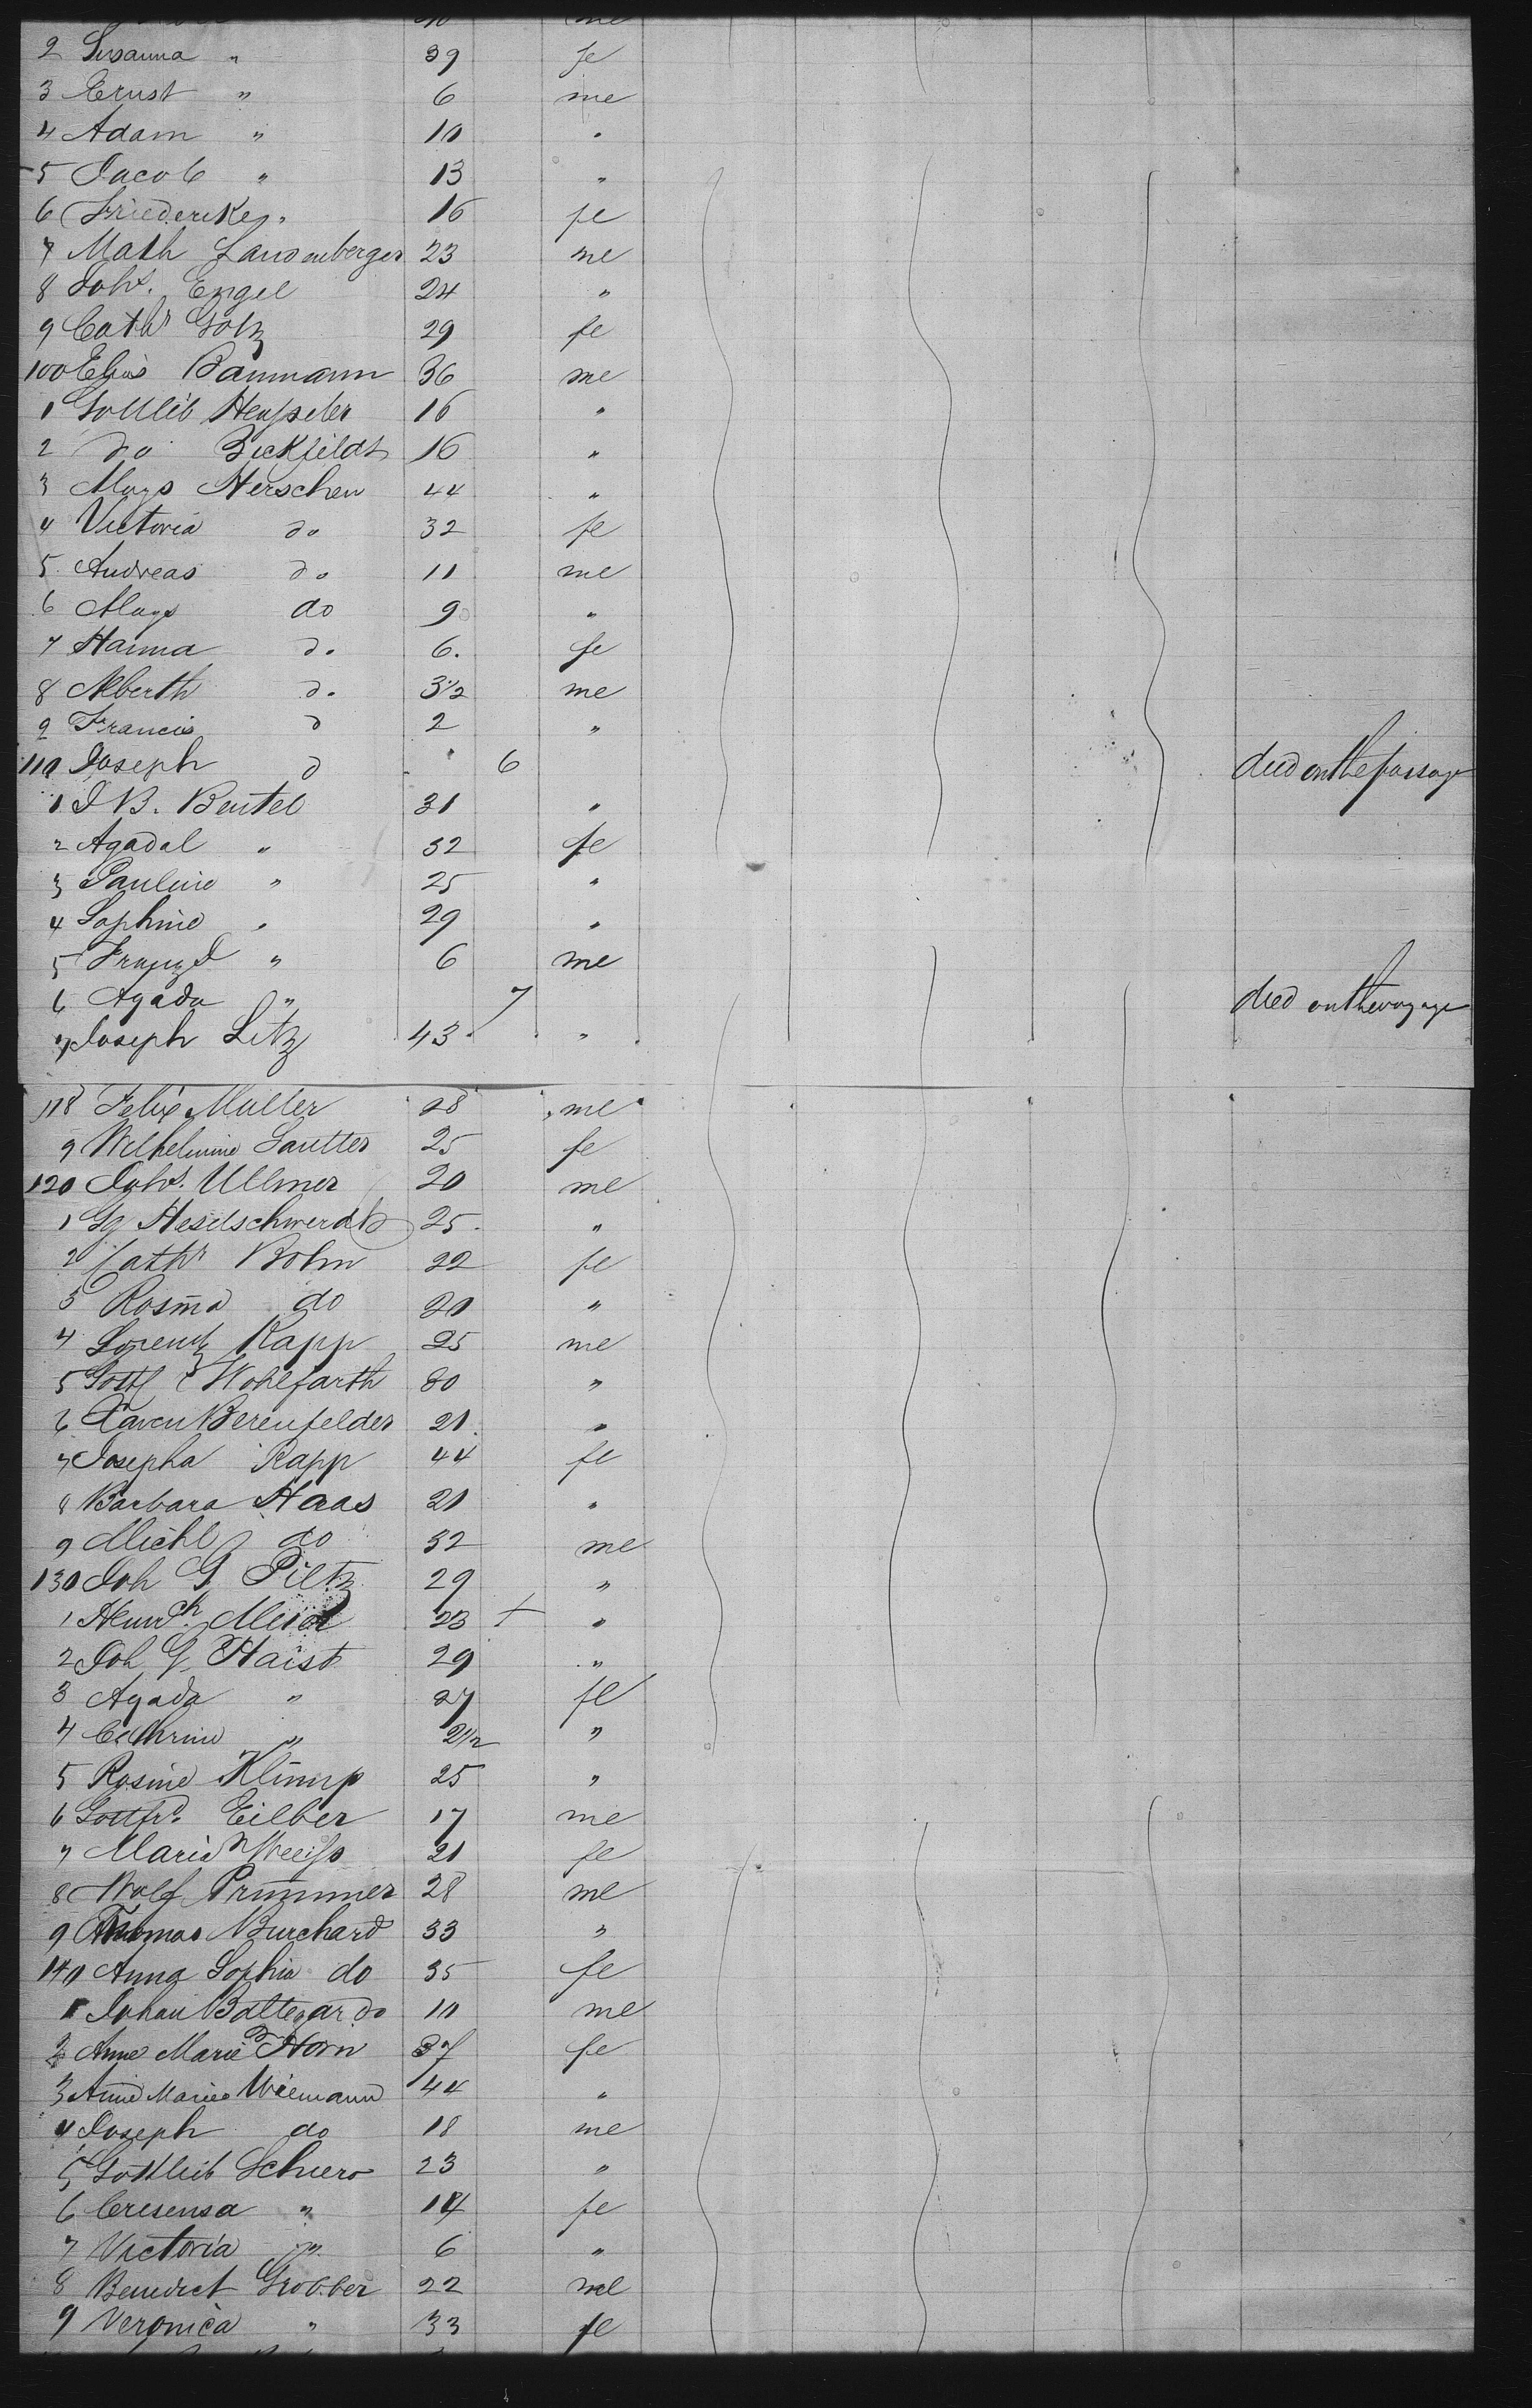 2 Susanna " 39 fe
3 Ernst " 6 me
4 Adam " 10 "
5 Jacob " 13 "
6 Friedericke " 16 fe
7 Math 23 me
8 Johs. Engel 24 "
9 Cathr Götz 29 fe
100 Elias Baumann 36 me
1 Gottlieb 16 "
2 do 16 "
3 Aloys Herschen 44 "
4 Victoria do 32 fe
5 Andreas do 11 me
6 Aloys do 9 "
7 Hanna do 6. fe
8 Alberth do 3 1/2 me
9 Francis d 2 "
110 Joseph d 6 died on the passage
1 J B. Beutel 31 "
2 Agadal " 32 fe
3 Pauline " 25 "
4 Sophine " 29 "
5 " 6 me
6 Agada " 7 died on the voyage
7 Joseph Litz 43 "
118 Felix Muller 28 me
9 Wilhelmine Sautter 25 fe
120 Johs. Ullmer 20 me
1 Gg Heselschwerdt 25. "
2 Cathr Bohm 22 fe
3 Rosina do 20 "
4 Lorentz Rapp 25 me
5 Gottf Wohlfarth 30 "
6 Berenfelder 21 "
7 Josepha Rapp 44 fe
8 Barbara Haas 21 "
9 Michl do 32 me
130 Joh G Piltz 29 "
1 Heinrch 23 + "
2 Joh G Haist 29 "
3 Agada " 27 fe
4 Cathrine " 2 1/2 "
5 Rosine Klump 25 "
6 Gottfrd. Eilber 17 me
7 Maria Weiss 21 fe
8 Wolf Prummer 28 me
9 Thomas Burchard 33 "
140 Anna Sophia do 35 fe
1 Johan Baltezar do 10 me
2 Anne Marie Horn 37 fe
3 Anne Marie Wiemann 44 "
4 Joseph do 18 me
5 Gottlieb 23 "
6 Cresensa " 14 fe
7 Victoria " 6 "
8 Benedict Grobber 22 me
9 Veronica " 33 fe